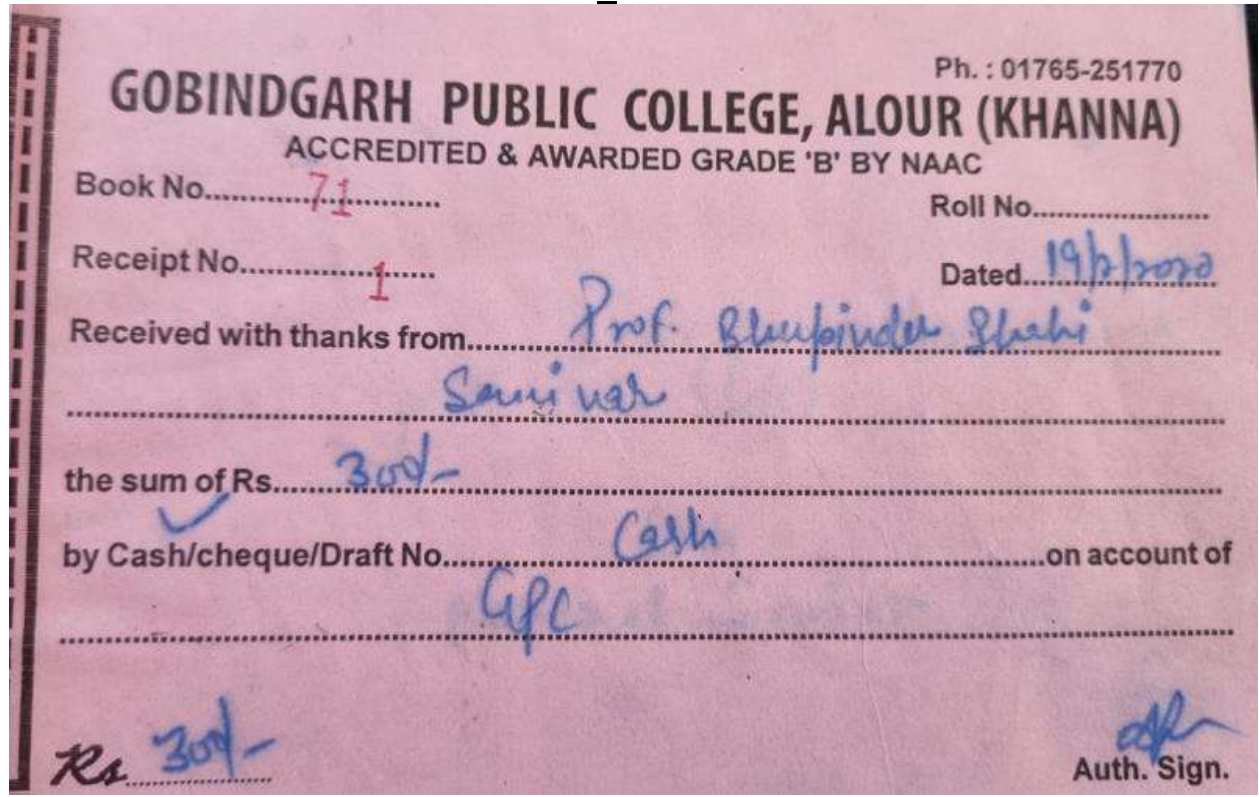 Ph. : 01765-251770
GOBINDGARH PUBLIC COLLEGE, ALOUR (KHANNA)
ACCREDITED & AWARDED GRADE 'B' BY NAAC
Book No. 71 Roll No.
Receipt No. 1 Dated 19/2/2020
Received with thanks from Prof. Bhupinder Shahi
Seminar
the sum of Rs. 300/-
by Cash/cheque/Draft No. Cash on account of
GPC
Rs 300/-
Auth. Sign.